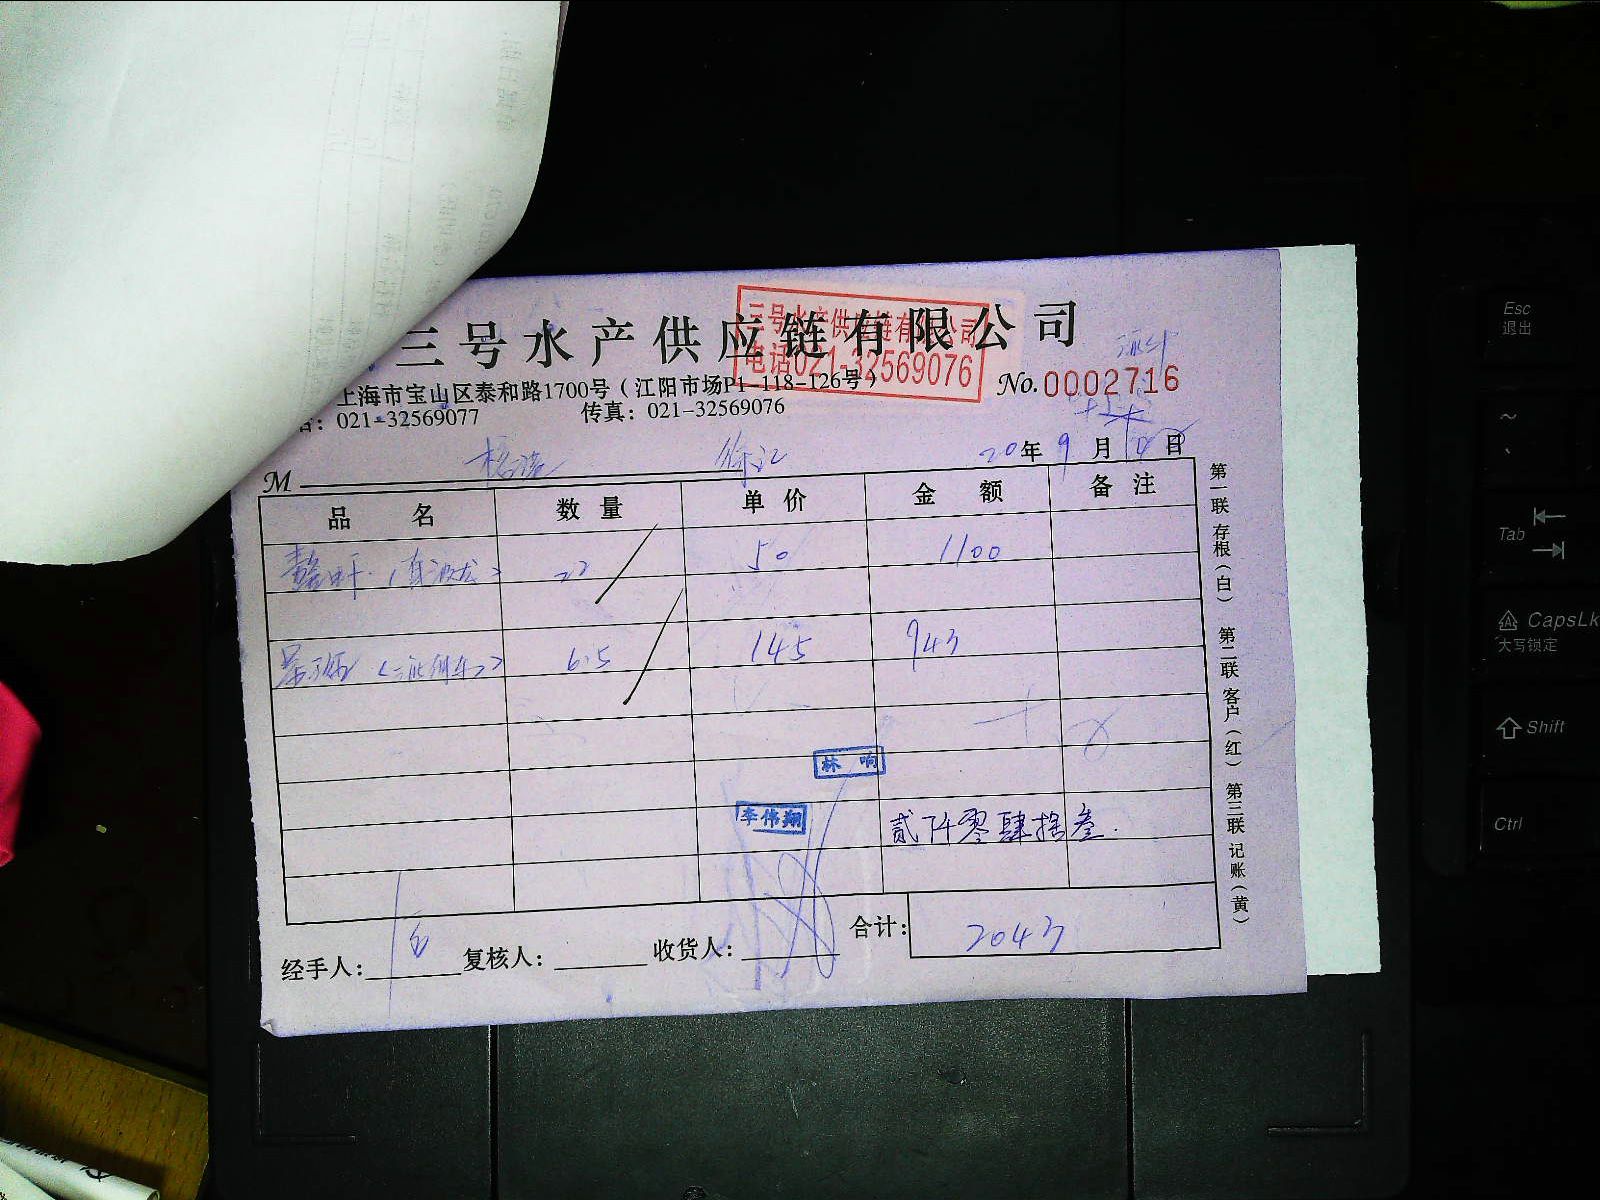 三号水产供应链有限公司
三号水产供应链有限公司
电话021-32569076
上海市宝山区泰和路1700号（江阳市场P1-118-126号）
No.0002716
：021-32569077 传真：021-32569076
M 徐汇 20年9月10日
品名 数量 单价 金额 备注
22 50 1100
6.5 145 943
林响
李伟翔
贰仟零肆拾叁.
经手人： 复核人： 收货人： 合计： 2043
第一联 存根（白） 第二联 客户（红） 第三联 记账（黄）
Esc
退出
~
Tab
CapsLk
大写锁定
Shift
Ctrl